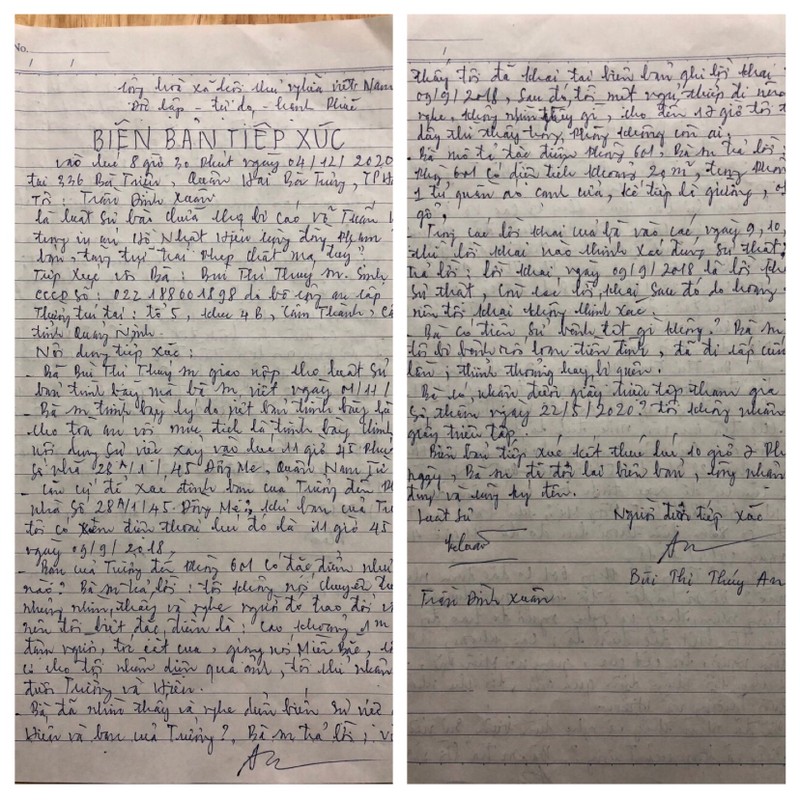 No.
Cộng hoà xã hội chủ nghĩa việt Nam
Độc lập - tự do - hạnh Phúc
BIÊN BẢN TIẾP XÚC
vào lúc 8 giờ 30 Phút ngày 04/12/2020
tại 336 Bà Triệu, Quận Hai Bà Trưng, TP H
Tôi: Trần Đình Xuân
là luật sư bào chữa cho bị cáo Vũ Tuấn
trong vụ án Hồ Nhật Hiếu cùng đồng Phạm
bán tàng trữ trái Phép chất ma túy
Tiếp xúc với Bà: Bùi Thị Thuý m. Sinh
CCCD Số: 022188601898 do bộ công an cấp
Thường trú tại: tổ 5, khu 4B, Cẩm Thành, Cẩ
tỉnh Quảng Ninh.
Nội dung tiếp xúc:
- Bà Bùi Thị Thuý m giao nộp cho luật sư
bản trình bày mà bà m viết ngày 01/11/
- Bà m trình bày lý do viết bản trình bày là
cho tòa án với mục đích là trình bày
nội dung Sự việc xảy vào lúc 11 giờ 45 Phút
Số nhà 28A/1/45 Đồng Me, Quận Nam Từ
- Căn cứ để xác định bạn của Trưởng đến
nhà Số 28A/1/45 Đồng Me, khi bạn của Tr
tôi có xem điện thoại lúc đó là 11 giờ 45
ngày 09/9/2018,
- Bạn của Trưởng đến Phòng 601 có đặc điểm như
nào? Bà m trả lời: tôi không nói chuyện
nhưng nhìn thấy và nghe người đó trao đổi
nên tôi biết đặc điểm là: Cao khoảng 1m
đậm người, tóc cắt cua, giọng nói Miền Bắc,
có cho tôi nhận diện qua ảnh, tôi chỉ nhận
được Trưởng và Hiếu.
- Bà đã nhìn thấy và nghe diễn biến Sự việc
Hiếu và bạn của Trưởng?, Bà m trả lời; v
thấy tôi đã khai tại biên bản ghi lời khai
09/9/2018, Sau đó, tôi mệt ngủ thiếp đi nên
nghe, không nhìn thấy gì, cho đến 17 giờ tôi t
dậy thì thấy trong Phòng không còn ai,
- Bà mô tả đặc điểm Phòng 601, Bà m trả lời:
Phòng 601 có diện tích khoảng 20 m², trong Phòn
1 tủ quần áo cạnh cửa, kế tiếp là giường,
gỗ,
- Trong các lời khai của bà vào các ngày 9, 10,
thì lời khai nào chính xác đúng Sự thật
trả lời: lời khai ngày 09/9/2018 là lời kh
Sự thật, Còn các lời khai Sau đó do hoang
nên tôi khai không chính xác.
- Bà có tiền Sử bệnh tật gì không? Bà m
tôi bị bệnh rối loạn tiền đình, đã đi cấp cứu
lần; thỉnh thoảng hay bị quên.
- Bà có nhận được giấy triệu tập tham gia
Sơ thẩm ngày 22/5/2020? tôi không nhận
giấy triệu tập.
Biên bản tiếp xúc kết thúc lúc 10 giờ 2 Ph
ngày, Bà m đã đọc lại biên bản, công nhận
đúng và cùng ký tên.
Luật Sư
Người được tiếp xúc
Bùi Thị Thúy An
Trần Đình Xuân